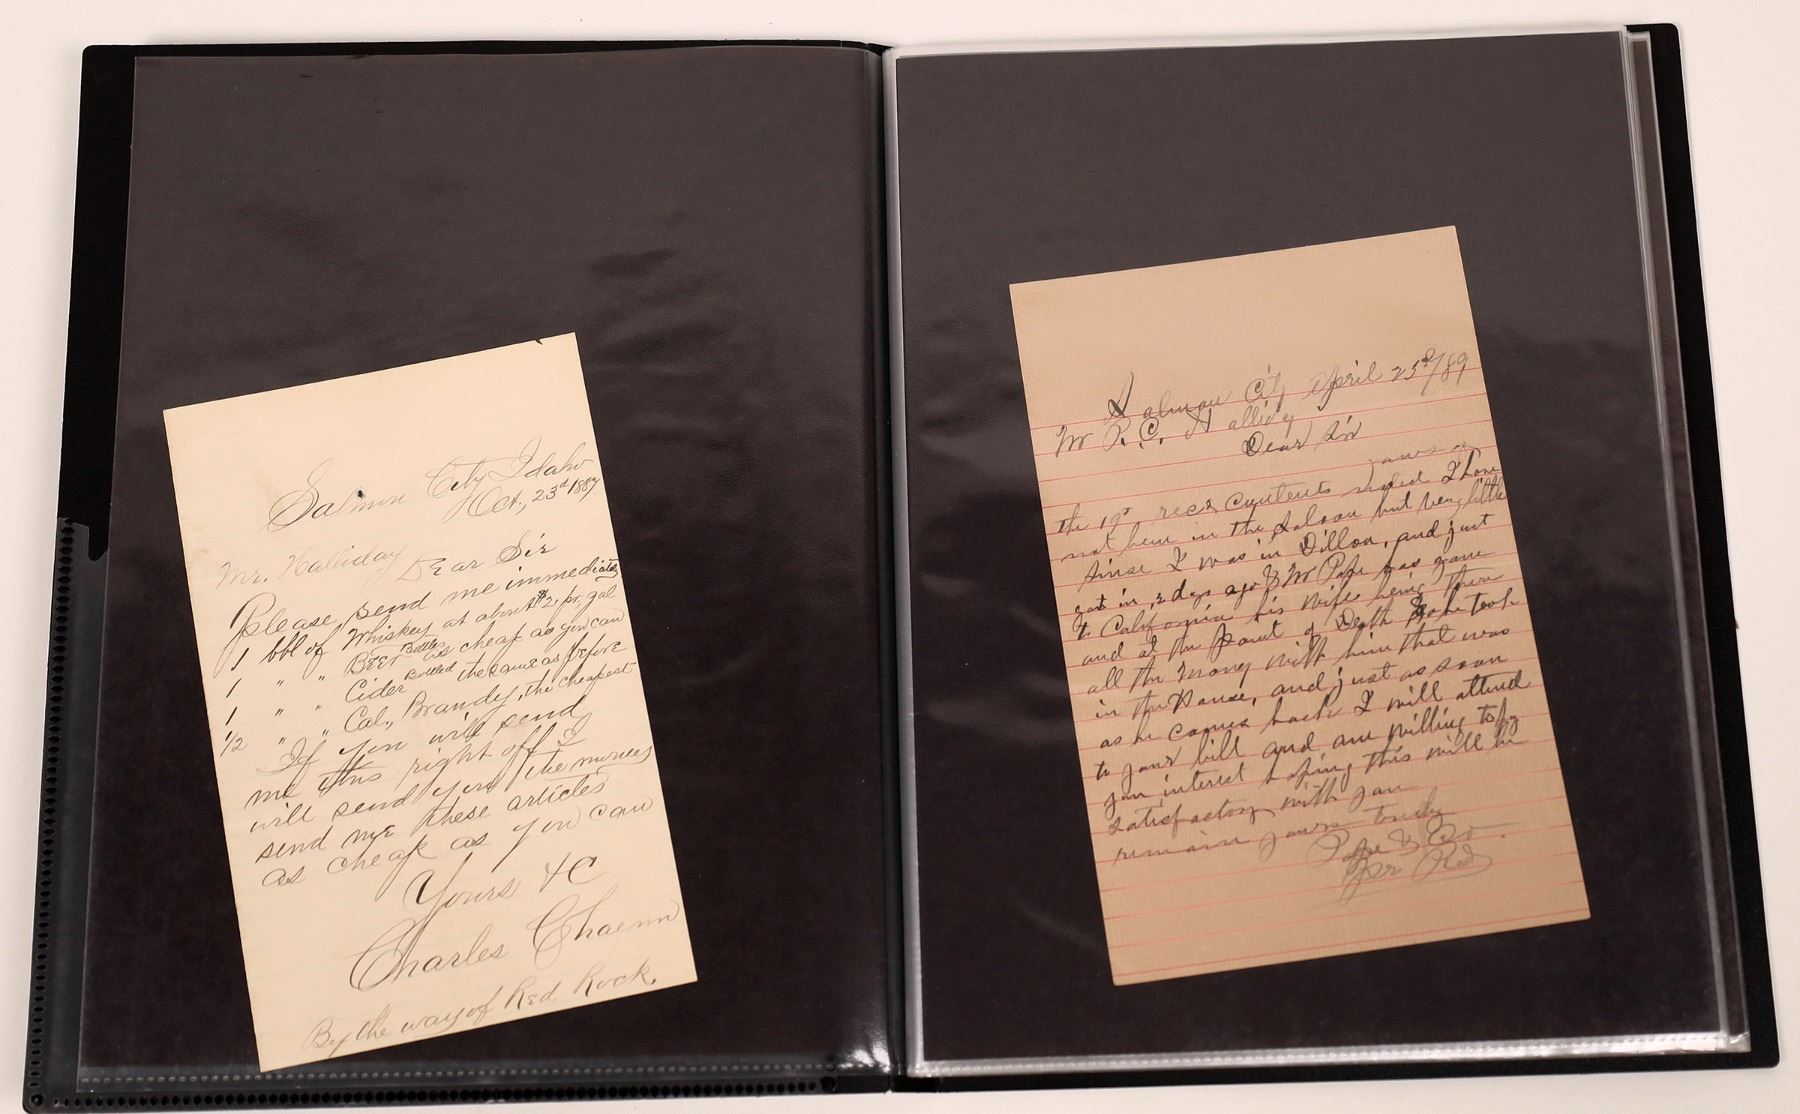 Salmon City Idaho
Oct, 23d 1887
Mr. Halliday
Dear Sir
Please send me immediately
1 bbl of Whiskey at about $2 pr, gal
1 " " Beer Bottles as cheap as you can
1 " " Cider Bottled the same as before
1/2 " " Cal, Brandy, the cheapest
If you will send
me this right off I
will send you the money
send me these articles
as cheap as you can
Yours &C
Charles
By the way of Red Rock.
Salmon City April 25d/89
Mr P. C. Halliday
Dear Sir
yours of
the 19th recd contents noted I have
not been in the Saloon but very little
sinse I was in Dillon, and just
got in 2 days ago & Mr Pope has gone
to California his wife being there
and at the point of Deth so he took
all the mony with him that was
in the House, and just as soon
as he comes back I will attend
to your bill and am willing to pay
you interest hoping this will be
satisfactory with you
remain yours truly
Pope & Co.
Per